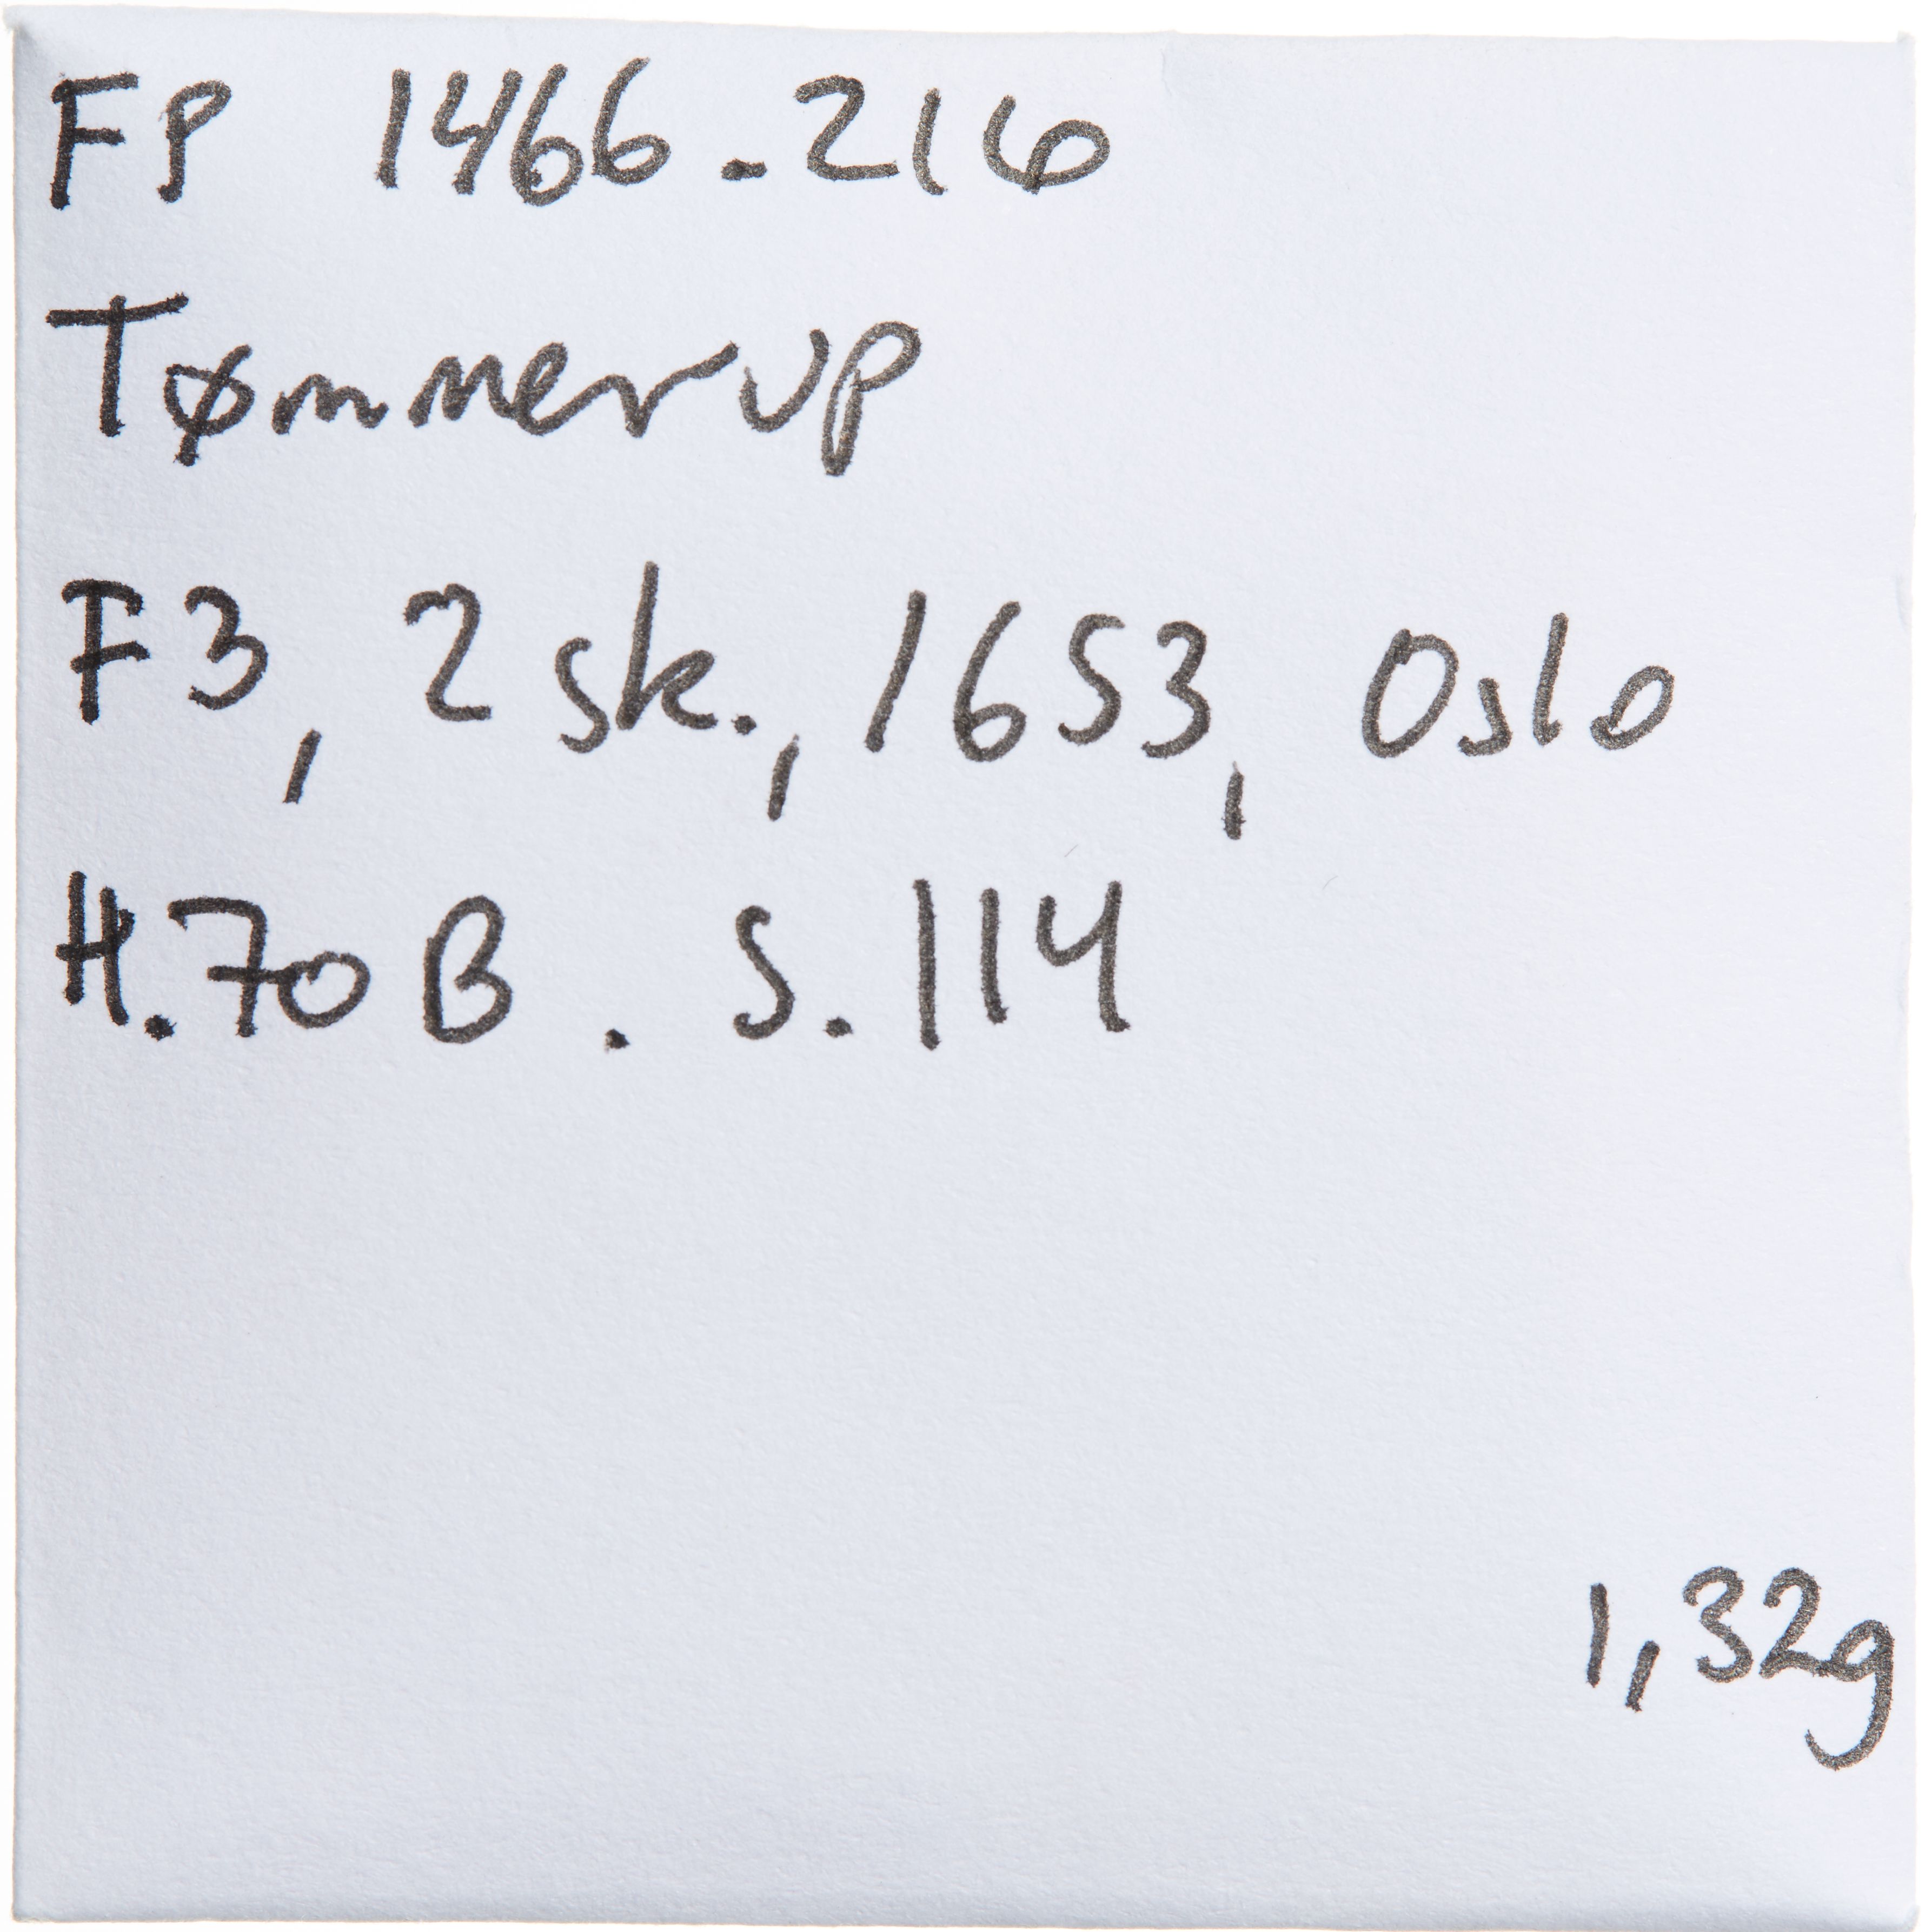 FP 1466.216
Tømmerup
F3, 2 sk., 1653, Oslo
H.70 B. S.114
1,32g